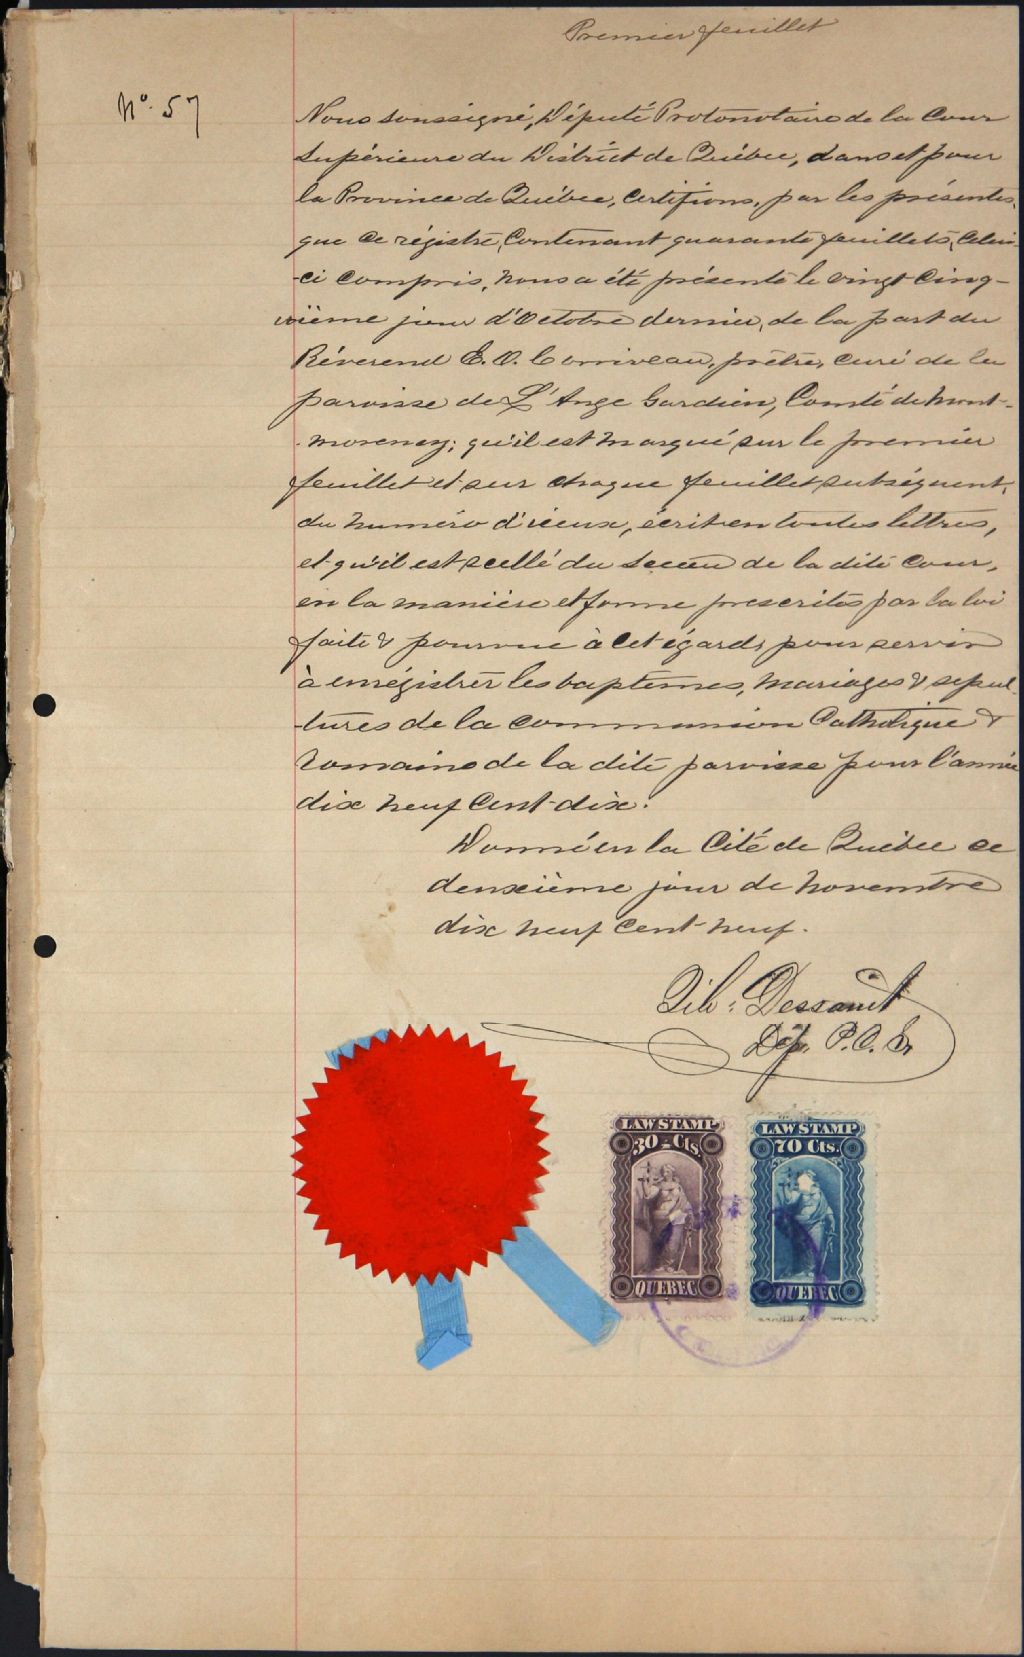 Premier feuillet
No. 57
Nous soussigné, Député Protonotaire de la Cour
Supérieure du District de Québec, dans et pour
la Province de Québec, Certifions, par les présentes,
que ce régistre, Contenant quarante feuillets, Celui-
-ci compris, nous a été présenté le vingt cinq-
-uième jour d'Octobre dernier, de la part du
Révérend E. O. Corriveau, prêtre, curé de la
paroisse de L'Ange Gardien, Comté de Mont-
-morency; qu'il est marqué sur le premier
feuillet et sur chaque feuillet subséquent,
du numéro d'iceux, écrit en toutes lettres,
et qu'il est scellé du sceau de la dite Cour,
en la manière et forme prescrites par la loi
faite & pourvue à cet égard, pour servir
à enrégistrer les baptêmes, mariages & sepul-
-tures de la communion Catholique &
Romaine de la dite paroisse pour l'année
dix neuf cent-dix.
Donné en la Cité de Québec ce
deuxième jour de Novembre
dix neuf cent-neuf.
Dessault
Dép. P. C. S.
LAW STAMP LAW STAMP
30-Cts. 70 Cts.
QUEBEC QUEBEC